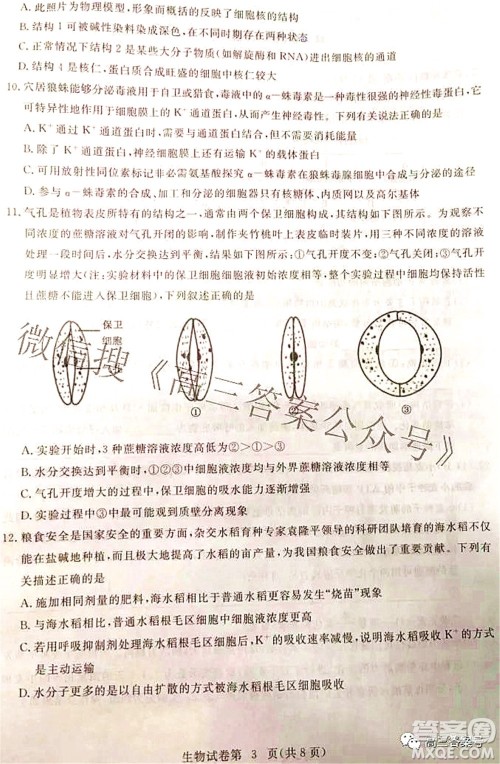 A. 此照片为物理模型，形象而概括的反映了细胞核的结构
B. 结构 1 可被碱性染料染成深色，在不同时期可能同时存在两种形态
C. 正常状态下结构 2 是某些大分子物质(如解旋酶和 RNA)进出细胞核的通道
D. 结构 4 是核仁，蛋白质合成旺盛的细胞中核仁较大
10. 穴居狼蛛能够分泌毒液用于自卫或猎食，毒液中的 α－蛛毒素是一种毒性很强的神经性毒蛋白，它
可特异性地作用于细胞膜上的 K⁺ 通道蛋白，从而产生神经毒性。下列有关说法正确的是
A. K⁺ 通过 K⁺ 通道蛋白时，需要与其结合，但不需要消耗能量
B. 除了 K⁺ 通道蛋白，神经细胞膜上无 K⁺ 的载体蛋白
C. 可用放射性同位素标记非必需氨基酸探究 α－蛛毒素在狼蛛毒腺细胞中合成与分泌的途径
D. 参与 α－蛛毒素的合成、加工和分泌的细胞器只有核糖体、内质网以及高尔基体
11. 气孔是植物表皮所特有的结构之一，通常由两个保卫细胞构成，其结构如下图所示。为观察不
同浓度的蔗糖溶液对气孔开闭的影响，制作夹竹桃叶上表皮临时装片，用三种浓度的蔗糖溶液
处理一段时间后，水分交换达到平衡，结果如图所示(①气孔开度不变；②气孔关闭；③气孔开
度明显增大(注：实验材料中的各保卫细胞细胞液初始浓度都相等，整个实验过程中细胞均保持活性
且蔗糖不能进入保卫细胞)，下列叙述正确的是
保卫
细胞
① ② ③
微信搜《高三答案公众号》
A. 实验开始时，3 种蔗糖溶液浓度高低为②＞①＞③
B. 水分交换达到平衡时，①②③中细胞液浓度均与外界蔗糖溶液浓度相等
C. 气孔开度增大的过程中，保卫细胞的吸水能力逐渐增强
D. 实验过程中②最可能发生质壁分离现象
12. 粮食安全是国家安全的重要方面，杂交水稻育种专家袁隆平领导的科研团队培育的海水稻不仅
能在盐碱地种植，而且极大地提高了水稻的亩产量，为我国的粮食安全做出了重要贡献。下列有
关描述正确的是
A. 施加相同剂量的肥料，海水稻相比于普通水稻更容易出现“烧苗”现象
B. 与海水稻相比，普通水稻根毛区细胞中细胞液浓度更高
C. 若用呼吸抑制剂处理海水稻根毛区细胞后，K⁺ 的吸收受到影响，说明海水稻吸收 K⁺ 的方式
是主动运输
D. 水分子更多的是以自由扩散的方式被海水稻根毛区细胞吸收
生物试卷第 3 页(共 8 页)
高三答案号
答案圈
MXQE.COM